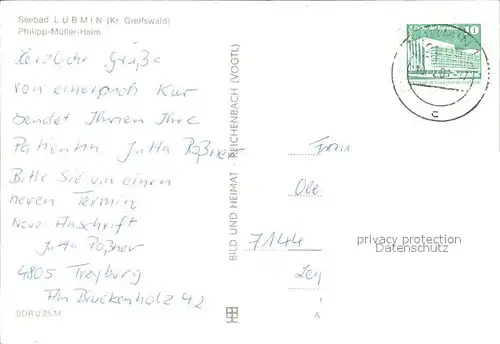 Seebad LUBMIN (Kr. Greifswald)
Philipp-Müller-Heim
Herzliche Grüße
von einer Kur
sendet Ihnen Ihre
Patientin Jutta Roßner
Bitte Sie um einen
neuen Termin
Neue Anschrift
Jutta Roßner
4805 Freyburg
Am Brückenholz 42
DDR 0,25 M
BILD UND HEIMAT · REICHENBACH (VOGTL)
10
LUBMIN
c
7144
privacy protection
Datenschutz
A